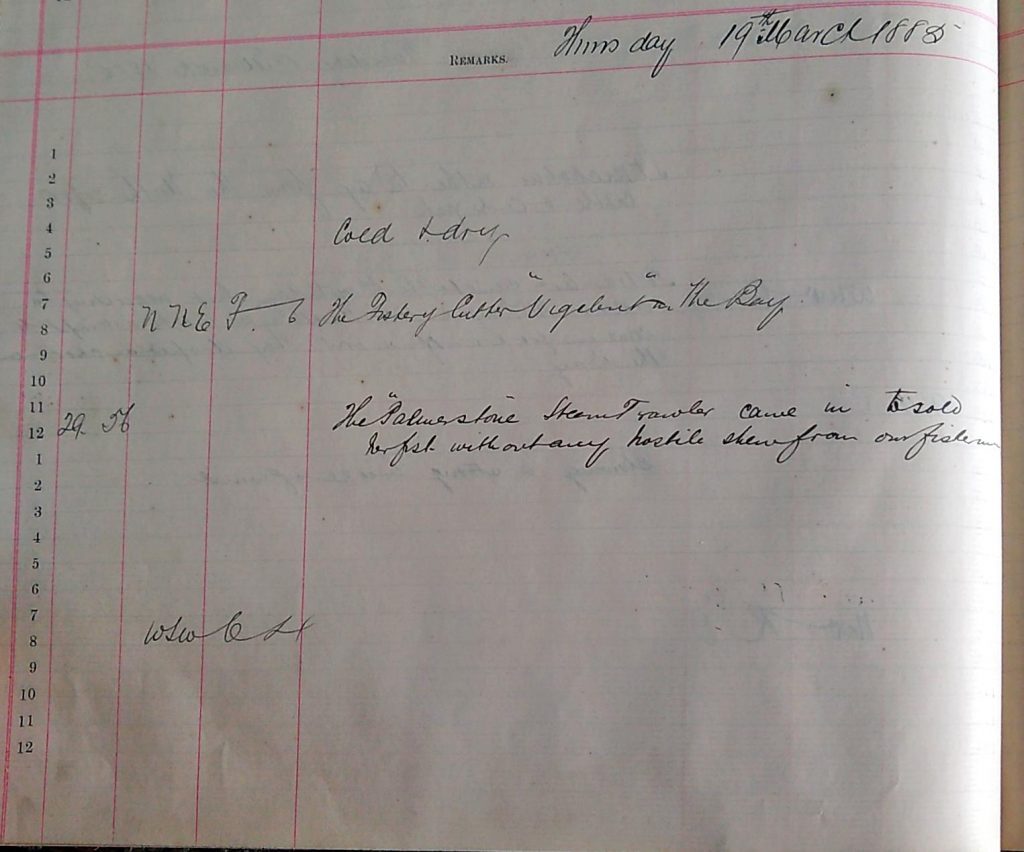 Thursday 19th March 1885
REMARKS.
1
2
3
4 Cold & dry
5
6
7 NNE F. 6 The Fishery Cutter "Vigelent" in The Bay.
8
9
10
11 The "Palmerstone Steam Trawler came in & sold
12 29. 56 her fish without any hostile shew from our fishermen
1
2
3
4
5
6
7
8 WSW C
9
10
11
12